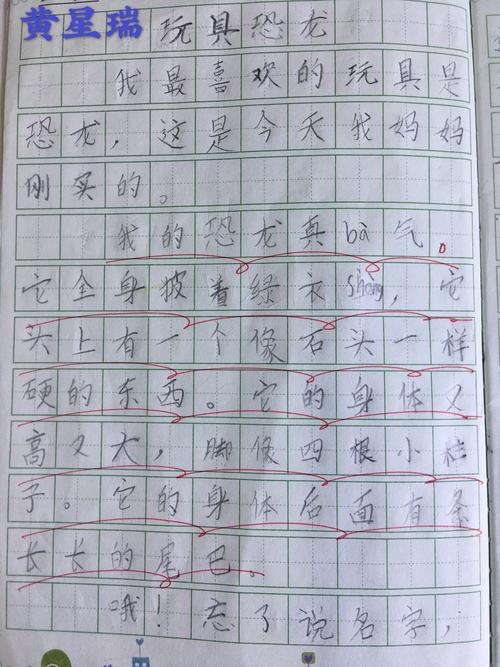 黄星瑞
玩具恐龙
我最喜欢的玩具是
恐龙，这是今天我妈妈
刚买的。
我的恐龙真bà气。
它全身披着绿衣shang，它
头上有一个像石头一样
硬的东西。它的身体又
高又大，脚像四根小柱
子。它的身体后面有条
长长的尾巴。
哦！忘了说名字，